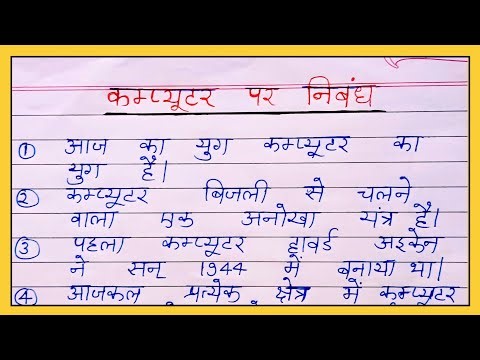 कम्प्यूटर पर निबंध
① आज का युग कम्प्यूटर का
युग है।
② कम्प्यूटर बिजली से चलने
वाला एक अनोखा यंत्र है।
③ पहला कम्प्यूटर हावर्ड अइकेन
ने सन् 1944 में बनाया था।
④ आजकल प्रत्येक क्षेत्र में कम्प्यूटर